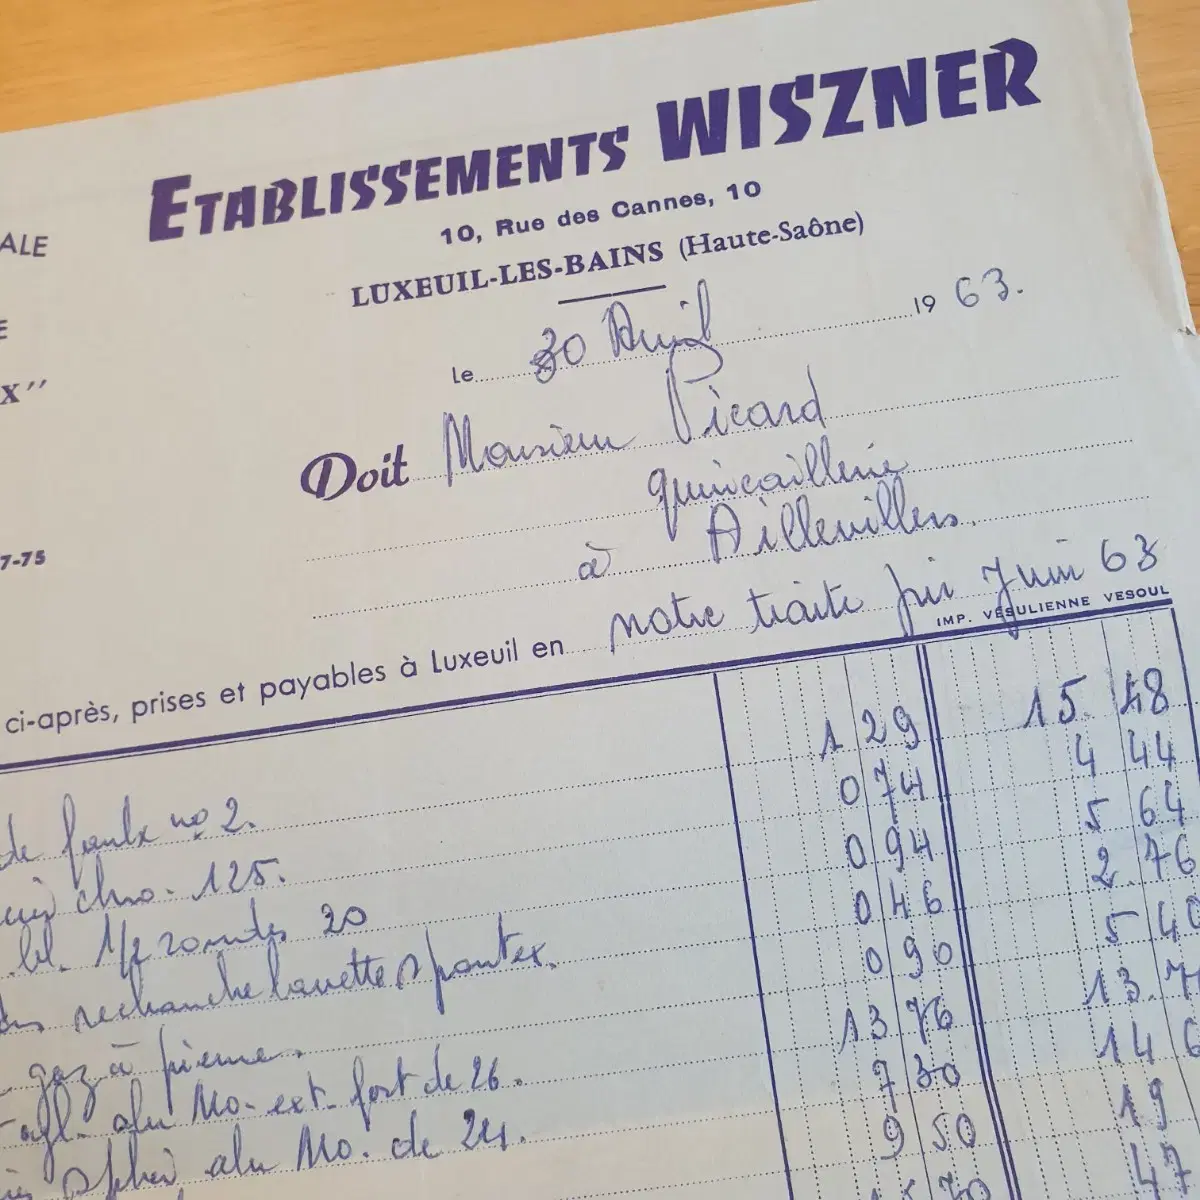 ETABLISSEMENTS WISZNER
10, Rue des Cannes, 10
LUXEUIL-LES-BAINS (Haute-Saône)
ALE
E
X"
7-75
Le 30 Avril 1963.
Doit Monsieur Picard
quincaillerie
à Aillevillers.
ci-après, prises et payables à Luxeuil en notre traite fin Juin 63
IMP. VÉSULIENNE VESOUL
1 29 15.48
de faulx no 2. 0 74 4 44
chro. 125. 0 94 5 64
bl. 1/2 rondes 20 0 46 2.76
rechanche lavette spontex. 0 90 5 40
gaz à pierre. 13 76 13.7
alu Mo. ext. fort de 26. 7 30 14 6
alu Mo. de 24. 9 50 19
70 47